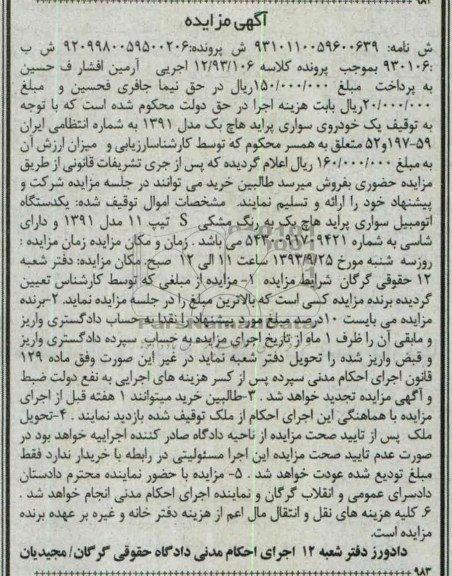 آگهی مزایده
ش نامه: ۹۳۱۰۱۱۰۰۵۹۶۰۰۶۳۹ ش پرونده:۹۲۰۹۹۸۰۰۵۹۵۰۰۲۰۶ ش ب
:۹۳۰۱۰۶ بموجب پرونده کلاسه ۱۲/۹۳/۱۰۶ اجریی آرمین افشار ف حسین
به پرداخت مبلغ ۱۵۰/۰۰۰/۰۰۰ریال در حق نیما جافری فحسین و مبلغ
۲۰/۰۰۰/۰۰۰ریال بابت هزینه اجرا در حق دولت محکوم شده است که با توجه
به توقیف یک خودروی سواری پراید هاچ بک مدل ۱۳۹۱ به شماره انتظامی ایران
۵۹-۱۹۷و۵۲ متعلق به همسر محکوم که توسط کارشناسارزیابی و میزان ارزش آن
به مبلغ ۱۶۰/۰۰۰/۰۰۰ ریال اعلام گردیده که پس از جری تشریفات قانونی از طریق
مزایده حضوری بفروش میرسد طالبین خرید می توانند در جلسه مزایده شرکت و
پیشنهاد خود را ارائه و تسلیم نمایند. مشخصات اموال توقیف شده: یکدستگاه
اتومبیل سواری پراید هاچ بک به رنگ مشکی S تیپ ۱۱ مدل ۱۳۹۱ و دارای
شاسی به شماره ۵۴۳۰۰۹۱۷۰۹۴۲۱ می باشد . زمان و مکان مزایده زمان مزایده :
روزسه شنبه مورخ ۱۳۹۳/۹/۲۵ ساعت ۱۱ الی ۱۲ صبح. مکان مزایده: دفتر شعبه
۱۲ حقوقی گرگان شرایط مزایده ۱- مزایده از مبلغی که توسط کارشناس تعیین
گردیده برنده مزایده کسی است که بالاترین مبلغ را در جلسه مزایده نماید. ۲-برنده
مزایده می بایست ۱۰درصد مبلغ مورد پیشنهاد را نقدا به حساب دادگستری واریز
و مابقی آن را ظرف ۱ ماه از تاریخ اجرای مزایده به حساب سپرده دادگستری واریز
و قبض واریز شده را تحویل دفتر شعبه نماید در غیر این صورت وفق ماده ۱۲۹
قانون اجرای احکام مدنی سپرده پس از کسر هزینه های اجرایی به نفع دولت ضبط
و آگهی مزایده تجدید خواهد شد . ۳-طالبین خرید میتوانند ۱ هفته قبل از اجرای
مزایده با هماهنگی این اجرای احکام از ملک توقیف شده بازدید نمایند . ۴-تحویل
ملک پس از تایید صحت مزایده از ناحیه دادگاه صادر کننده اجراییه خواهد بود در
صورت عدم تایید صحت مزایده این اجرا مسئولیتی در رابطه با خریدار ندارد فقط
مبلغ تودیع شده عودت خواهد شد . ۵- مزایده با حضور نماینده محترم دادستان
دادسرای عمومی و انقلاب گرگان و نماینده اجرای احکام مدنی انجام خواهد شد .
۶. کلیه هزینه های نقل و انتقال مال اعم از هزینه دفتر خانه و غیره بر عهده برنده
مزایده است.
دادورز دفتر شعبه ۱۲ اجرای احکام مدنی دادگاه حقوقی گرگان/ مجیدیان
۹۸۳